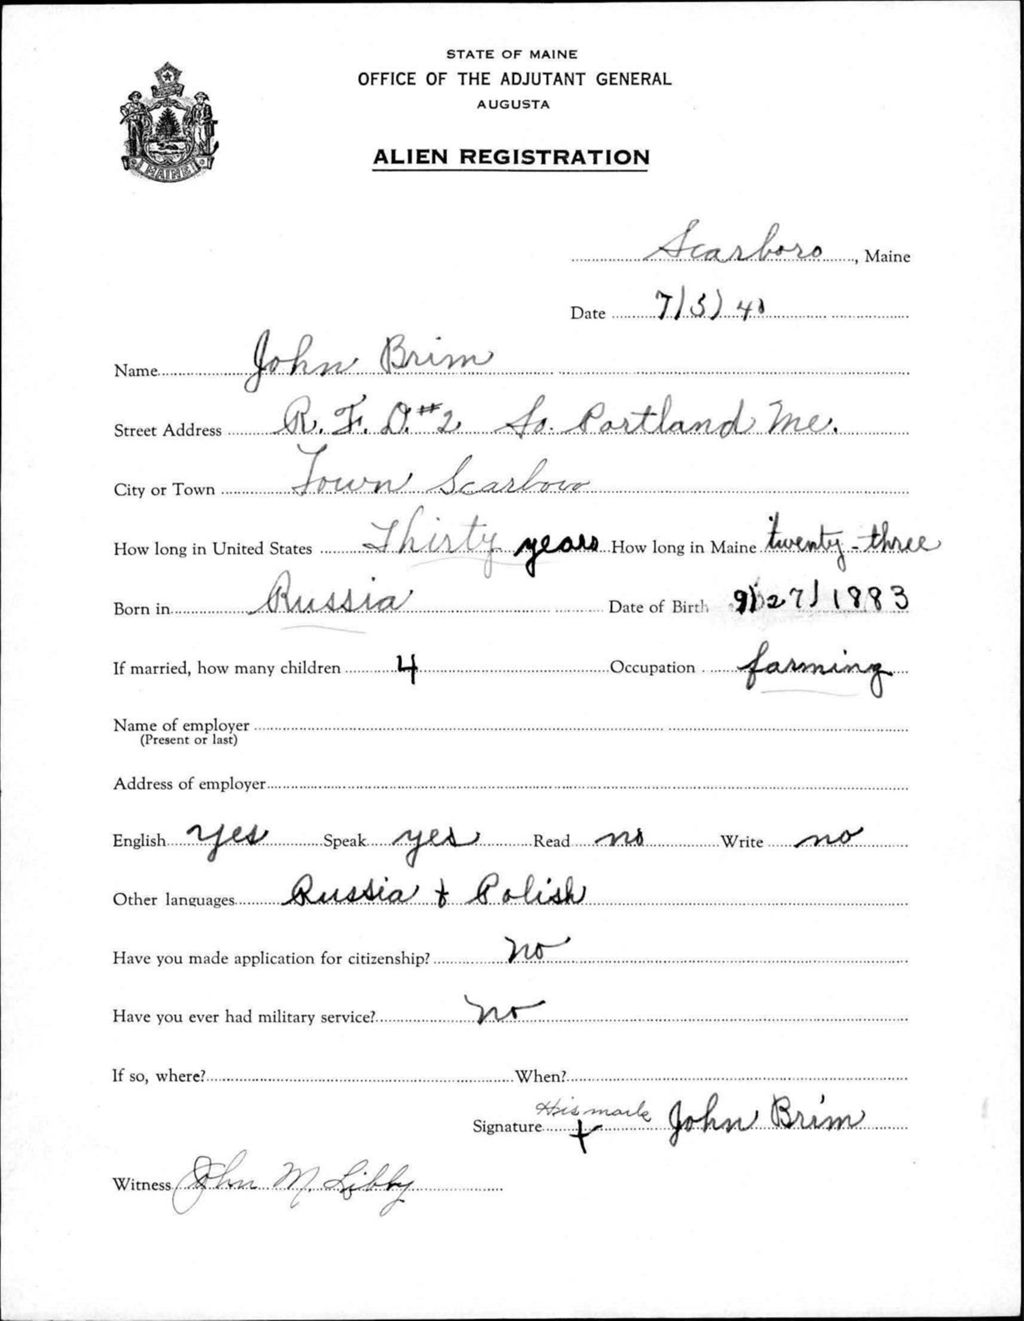 STATE OF MAINE
OFFICE OF THE ADJUTANT GENERAL
AUGUSTA
ALIEN REGISTRATION
MAINE
Scarboro, Maine
Date 7/3/40
Name John Brim
Street Address R. F. D. #2 So. Portland Me.
City or Town Town Scarboro
How long in United States Thirty years How long in Maine twenty-three
Born in Russia Date of Birth 9/27/1883
If married, how many children 4 Occupation farming
Name of employer
(Present or last)
Address of employer
English yes Speak yes Read no Write no
Other languages Russia & Polish
Have you made application for citizenship? no
Have you ever had military service? no
If so, where? When?
His mark
Signature + John Brim
Witness John M. Libby